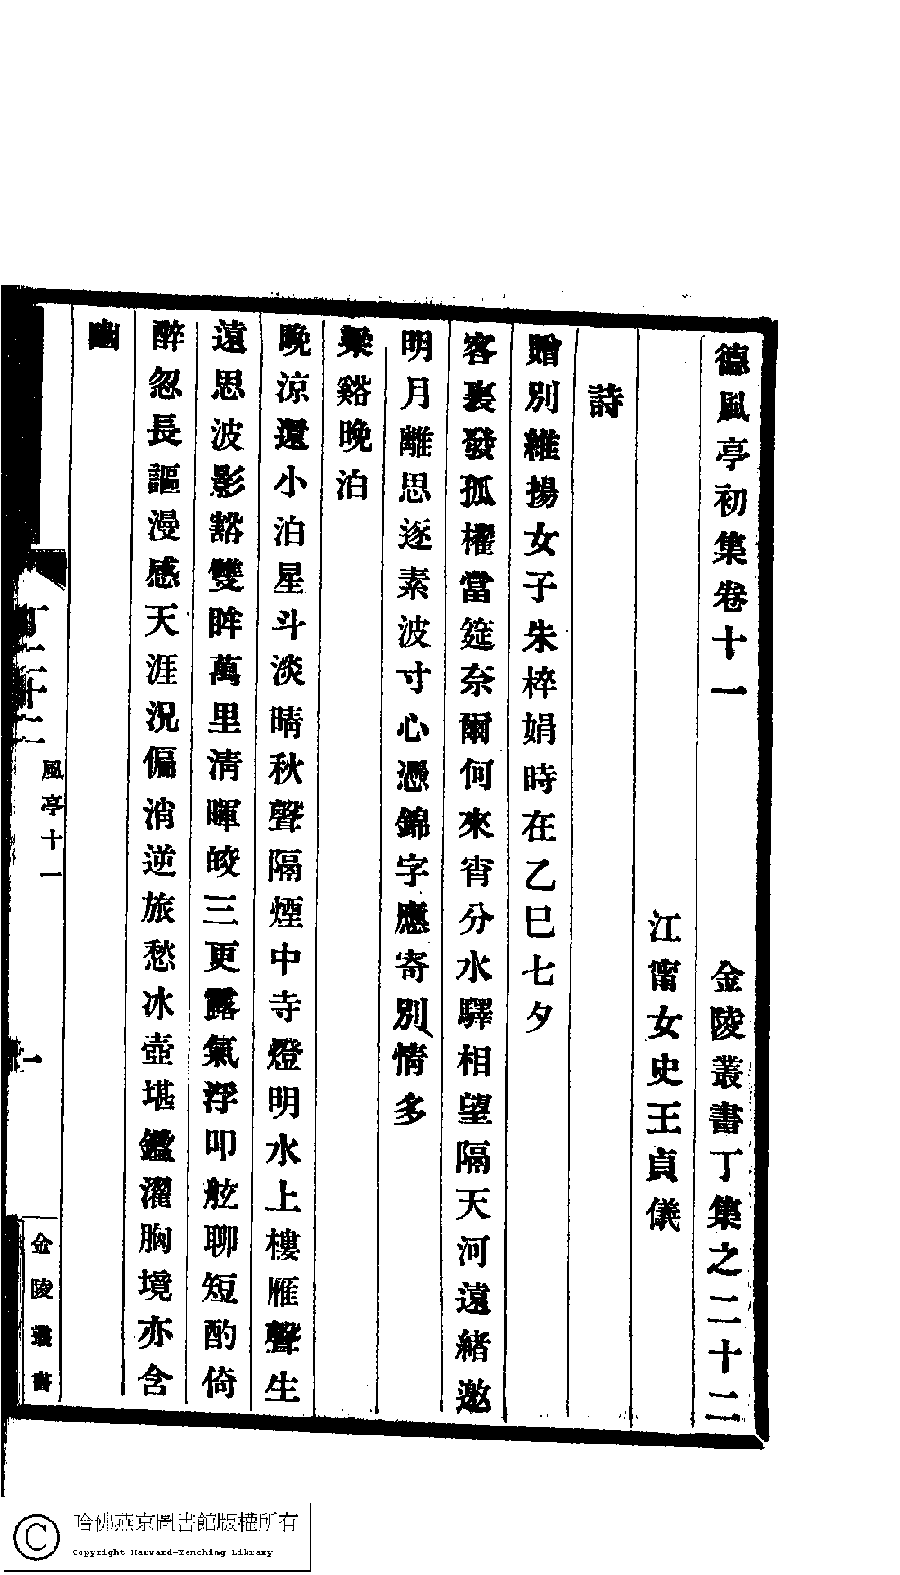 德風亭初集卷十一　金陵叢書丁集之二十二
江甯女史王貞儀
詩
贈別維揚女子朱梓娟時在乙巳七夕
客裏發孤櫂當筵奈爾何來宵分水驛相望隔天河遠緒邀
明月離思逐素波寸心憑錦字應寄別情多
梁谿晚泊
晚涼還小泊星斗淡晴秋聲隔煙中寺燈明水上樓雁聲生
遠思波影豁雙眸萬里清暉皎三更露氣浮叩舷聊短酌倚
醉忽長謳漫感天涯況偏消逆旅愁冰壺堪鑑濯胸境亦含
幽
丁二十二
風亭十一
一
金陵叢書
哈佛燕京圖書館版權所有
Copyright Harvard-Yenching Library